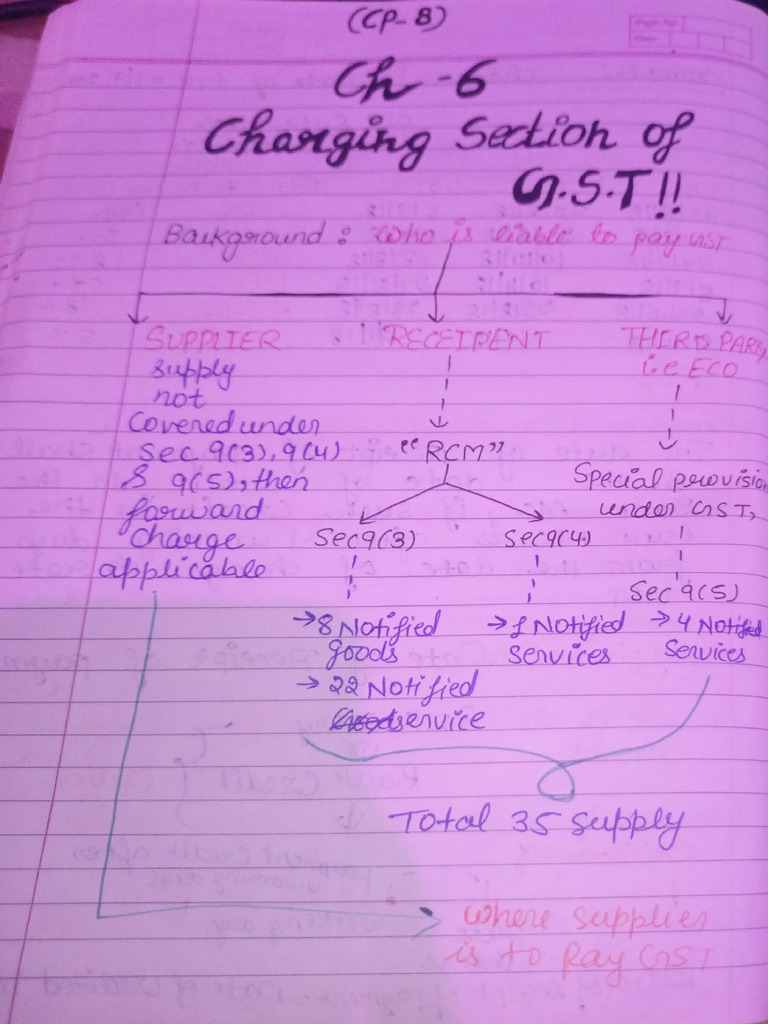 (CP-8)
Ch-6
Charging Section of
G.S.T!!
Background : who is liable to pay GST
SUPPLIER
supply
not
covered under
Sec 9(3), 9(4)
& 9(5), then
forward
charge
applicable
RECEIPENT
"RCM"
Sec9(3)
→ 8 Notified
goods
→ 22 Notified
service
Sec9(4)
→ 1 Notified
services
THERTS PARTY,
i.e ECO
Special provision
under GST,
Sec 9(5)
→ 4 Notified
Services
Total 35 supply
where supplies
is to Pay GST